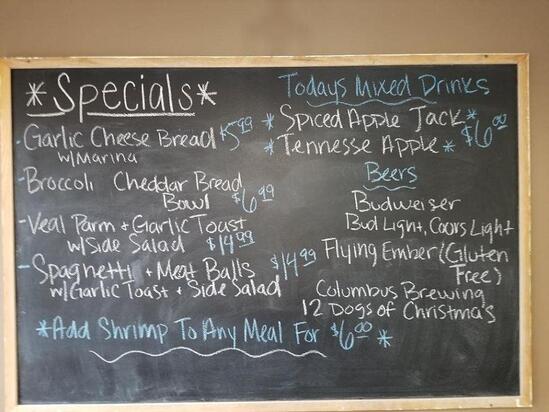 *Specials*
-Garlic Cheese Bread $5.99
w/Marina
-Broccoli Cheddar Bread
Bowl $6.99
-Veal Parm + Garlic Toast
w/Side Salad $14.99
-Spaghetti + Meat Balls $14.99
w/Garlic Toast + Side Salad
*Add Shrimp To Any Meal For $6.00*
Todays Mixed Drinks
*Spiced Apple Jack*
*Tennesse Apple* $6.00
Beers
Budweiser
Bud Light, Coors Light
Flying Ember (Gluten
Free)
Columbus Brewing
12 Dogs of Christmas